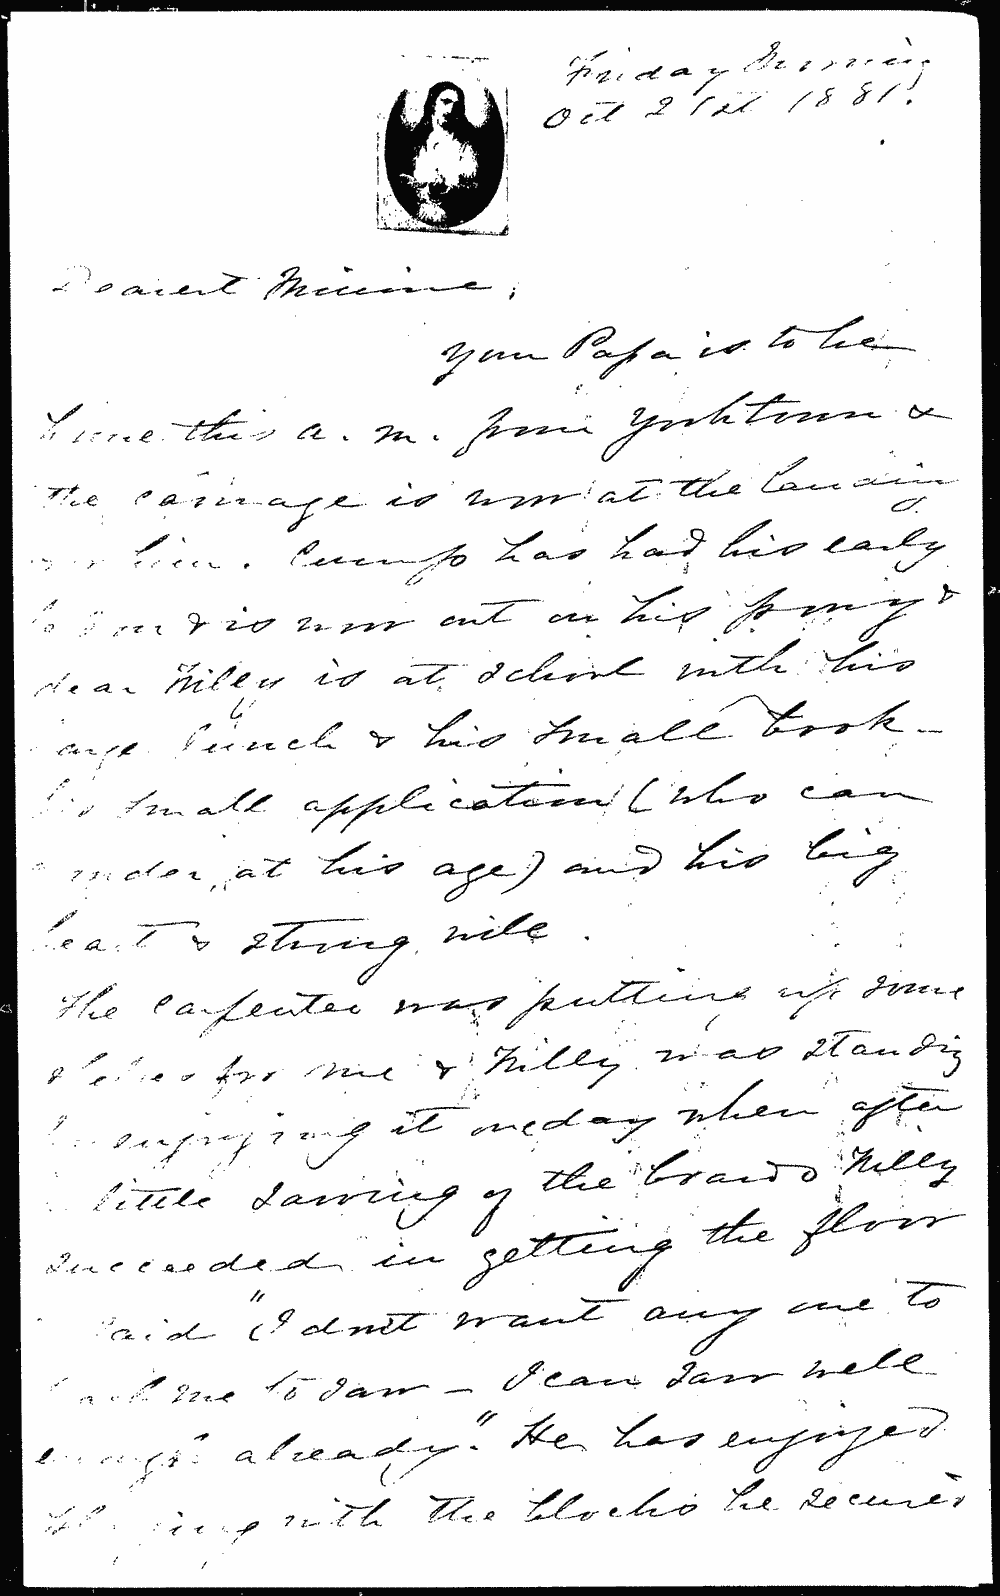 Friday Morning
Oct 21st 1881.
Dearest Minnie,
your Papa is to be
home this a. m. from Yorktown &
the carriage is now at the landing
for him. has had his early
& is now out on his pony &
dear Willy is at school with his
large lunch & his small book -
his small application (who can
wonder at his age) and his big
heart & strong will.
The carpenter was putting up some
shelves for me & Willy was standing
enjoying it one day when after
little sawing of the boards Willy
succeeded in getting the floor
said "I dont want any one to
teach me to saw - I can saw well
enough already." He has enjoyed
with the blocks he secured